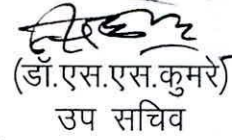 (डॉ.एस.एस.कुमरे)
उप सचिव